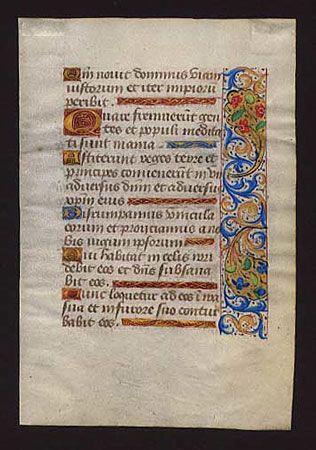 Qm novit dominus viam
iustorum et iter impioru
peribit.
Quare fremuerut gen
tes et populi medita
ti sunt inania
Astiterunt reges terre et
principes convenerut in vn
adversus dnm et adversus
xpm eius
Disrumpamus vincula
eorum et proiciamus a no
bis iugum ipsorum
Qui habitat in celis irri
debit eos et dns subsana
bit eos.
Tunc loquetur ad eos i ira
sua et in furore suo contur
babit eos.